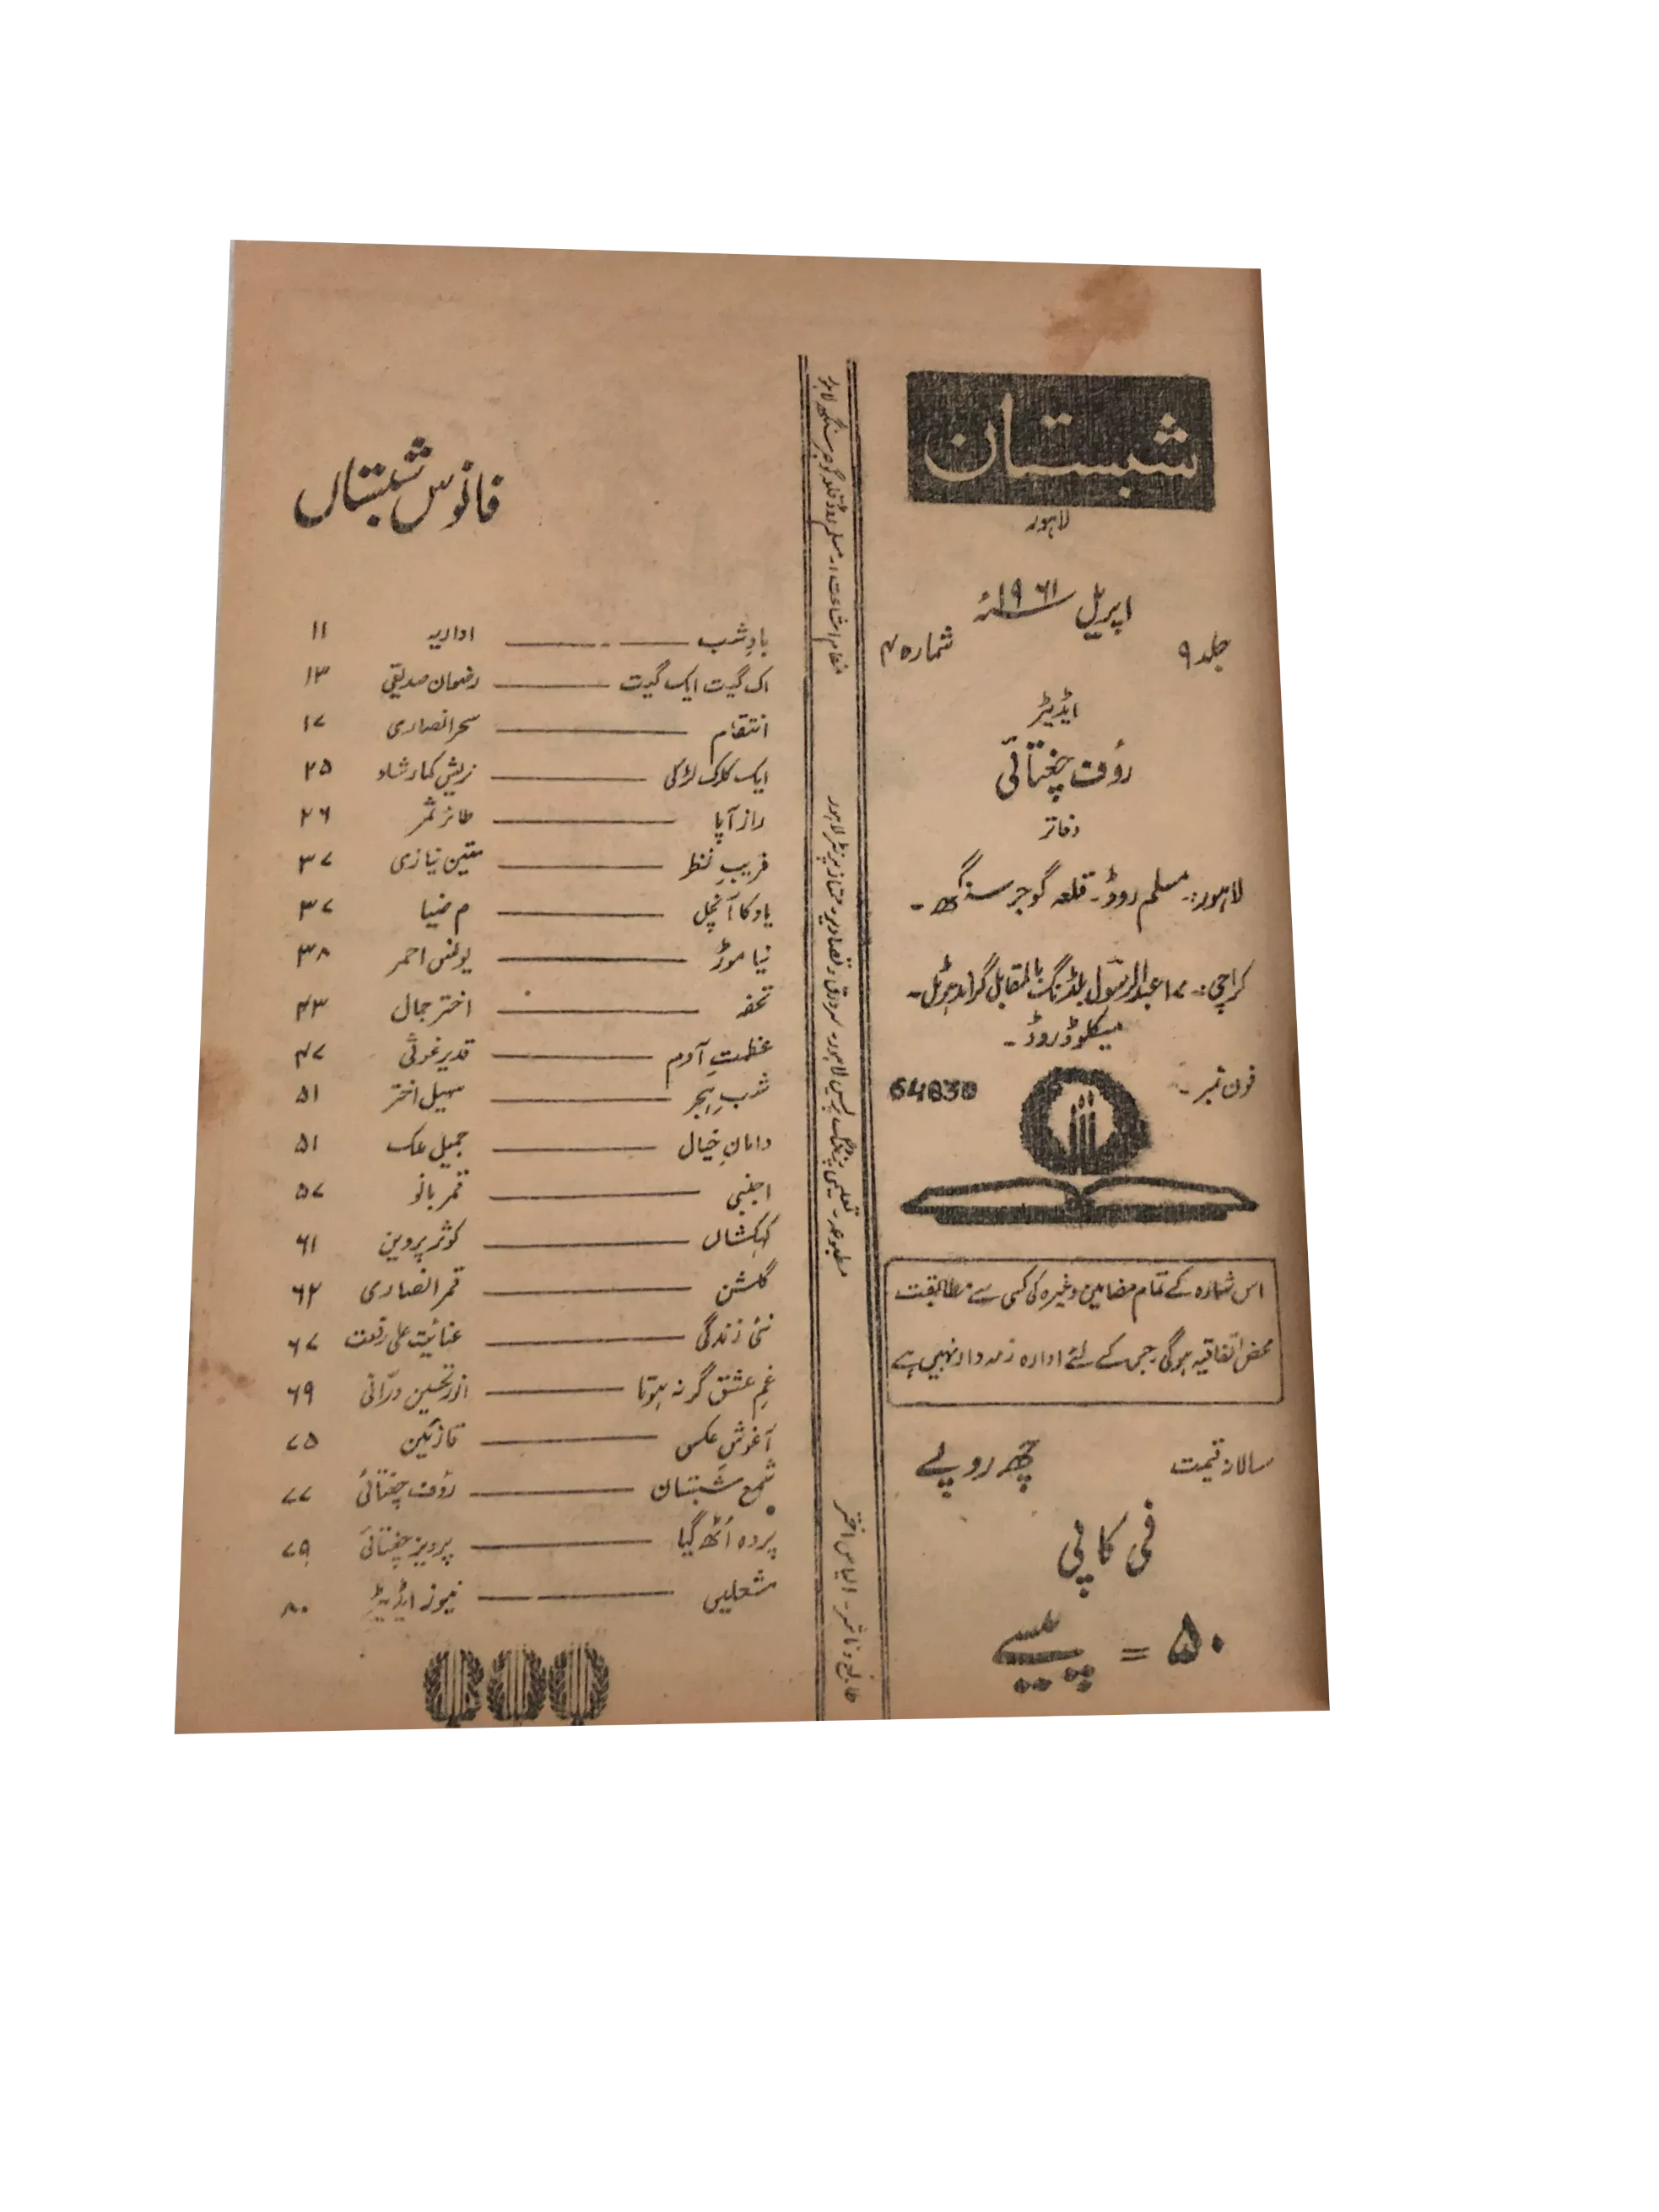 شبستان
لاہور
اپریل ۱۹۶۱ء
جلد ۹ شمارہ ۴
ایڈیٹر
رؤف چغتائی
دفاتر
لاہور:۔ مسلم روڈ۔ قلعہ گوجر سنگھ۔
کراچی:۔ ۱۷ عبدالرسول بلڈنگ بالمقابل گرانڈ ہوٹل۔
میکلوڈ روڈ۔
فون نمبر۔ 64030
اس شمارہ کے تمام مضامین وغیرہ کی کسی سے مطابقت
محض اتفاقیہ ہوگی جس کے لئے ادارہ ذمہ دار نہیں ہے
سالانہ قیمت چھ روپے
فی کاپی
۵۰ = پیسے
طابع و ناشر۔ الیاس اختر
مطبوعہ۔ تعلیمی پرنٹنگ پریس لاہور۔ سرورق و تصاویر۔ ممتاز پرنٹر لاہور
مقام اشاعت ۱۰ مسلم روڈ قلعہ گوجر سنگھ لاہور
فانوس شبستاں
بادِ شب اداریہ ۱۱
اک گیت ایک گیت رضوان صدیقی ۱۳
انتقام سحر انصاری ۱۷
ایک کلرک لڑکی نریش کمار شاد ۲۵
راز آپا طائر ثمر ۲۶
فریبِ نظر متین نیازی ۳۷
یاد کا آنچل م ضیا ۳۷
نیا موڑ یونس احمر ۳۸
تحفہ اختر جمال ۴۳
عظمتِ آدم قدیر غوثی ۴۷
شبِ ہجر سہیل اختر ۵۱
دامانِ خیال جمیل ملک ۵۱
اجنبی قمر بانو ۵۷
کہکشاں کوثر پروین ۶۱
گلشن قمر انصاری ۶۲
نئی زندگی عنائیت علی رفعت ۶۷
غمِ عشق گر نہ ہوتا انور تحسین درّانی ۶۹
آغوشِ عکس قارئین ۷۵
شمع شبستان رؤف چغتائی ۷۷
پردہ اُٹھ گیا پرویز چغتائی ۷۹
شعلیں نیوز ایڈیٹر ۸۰